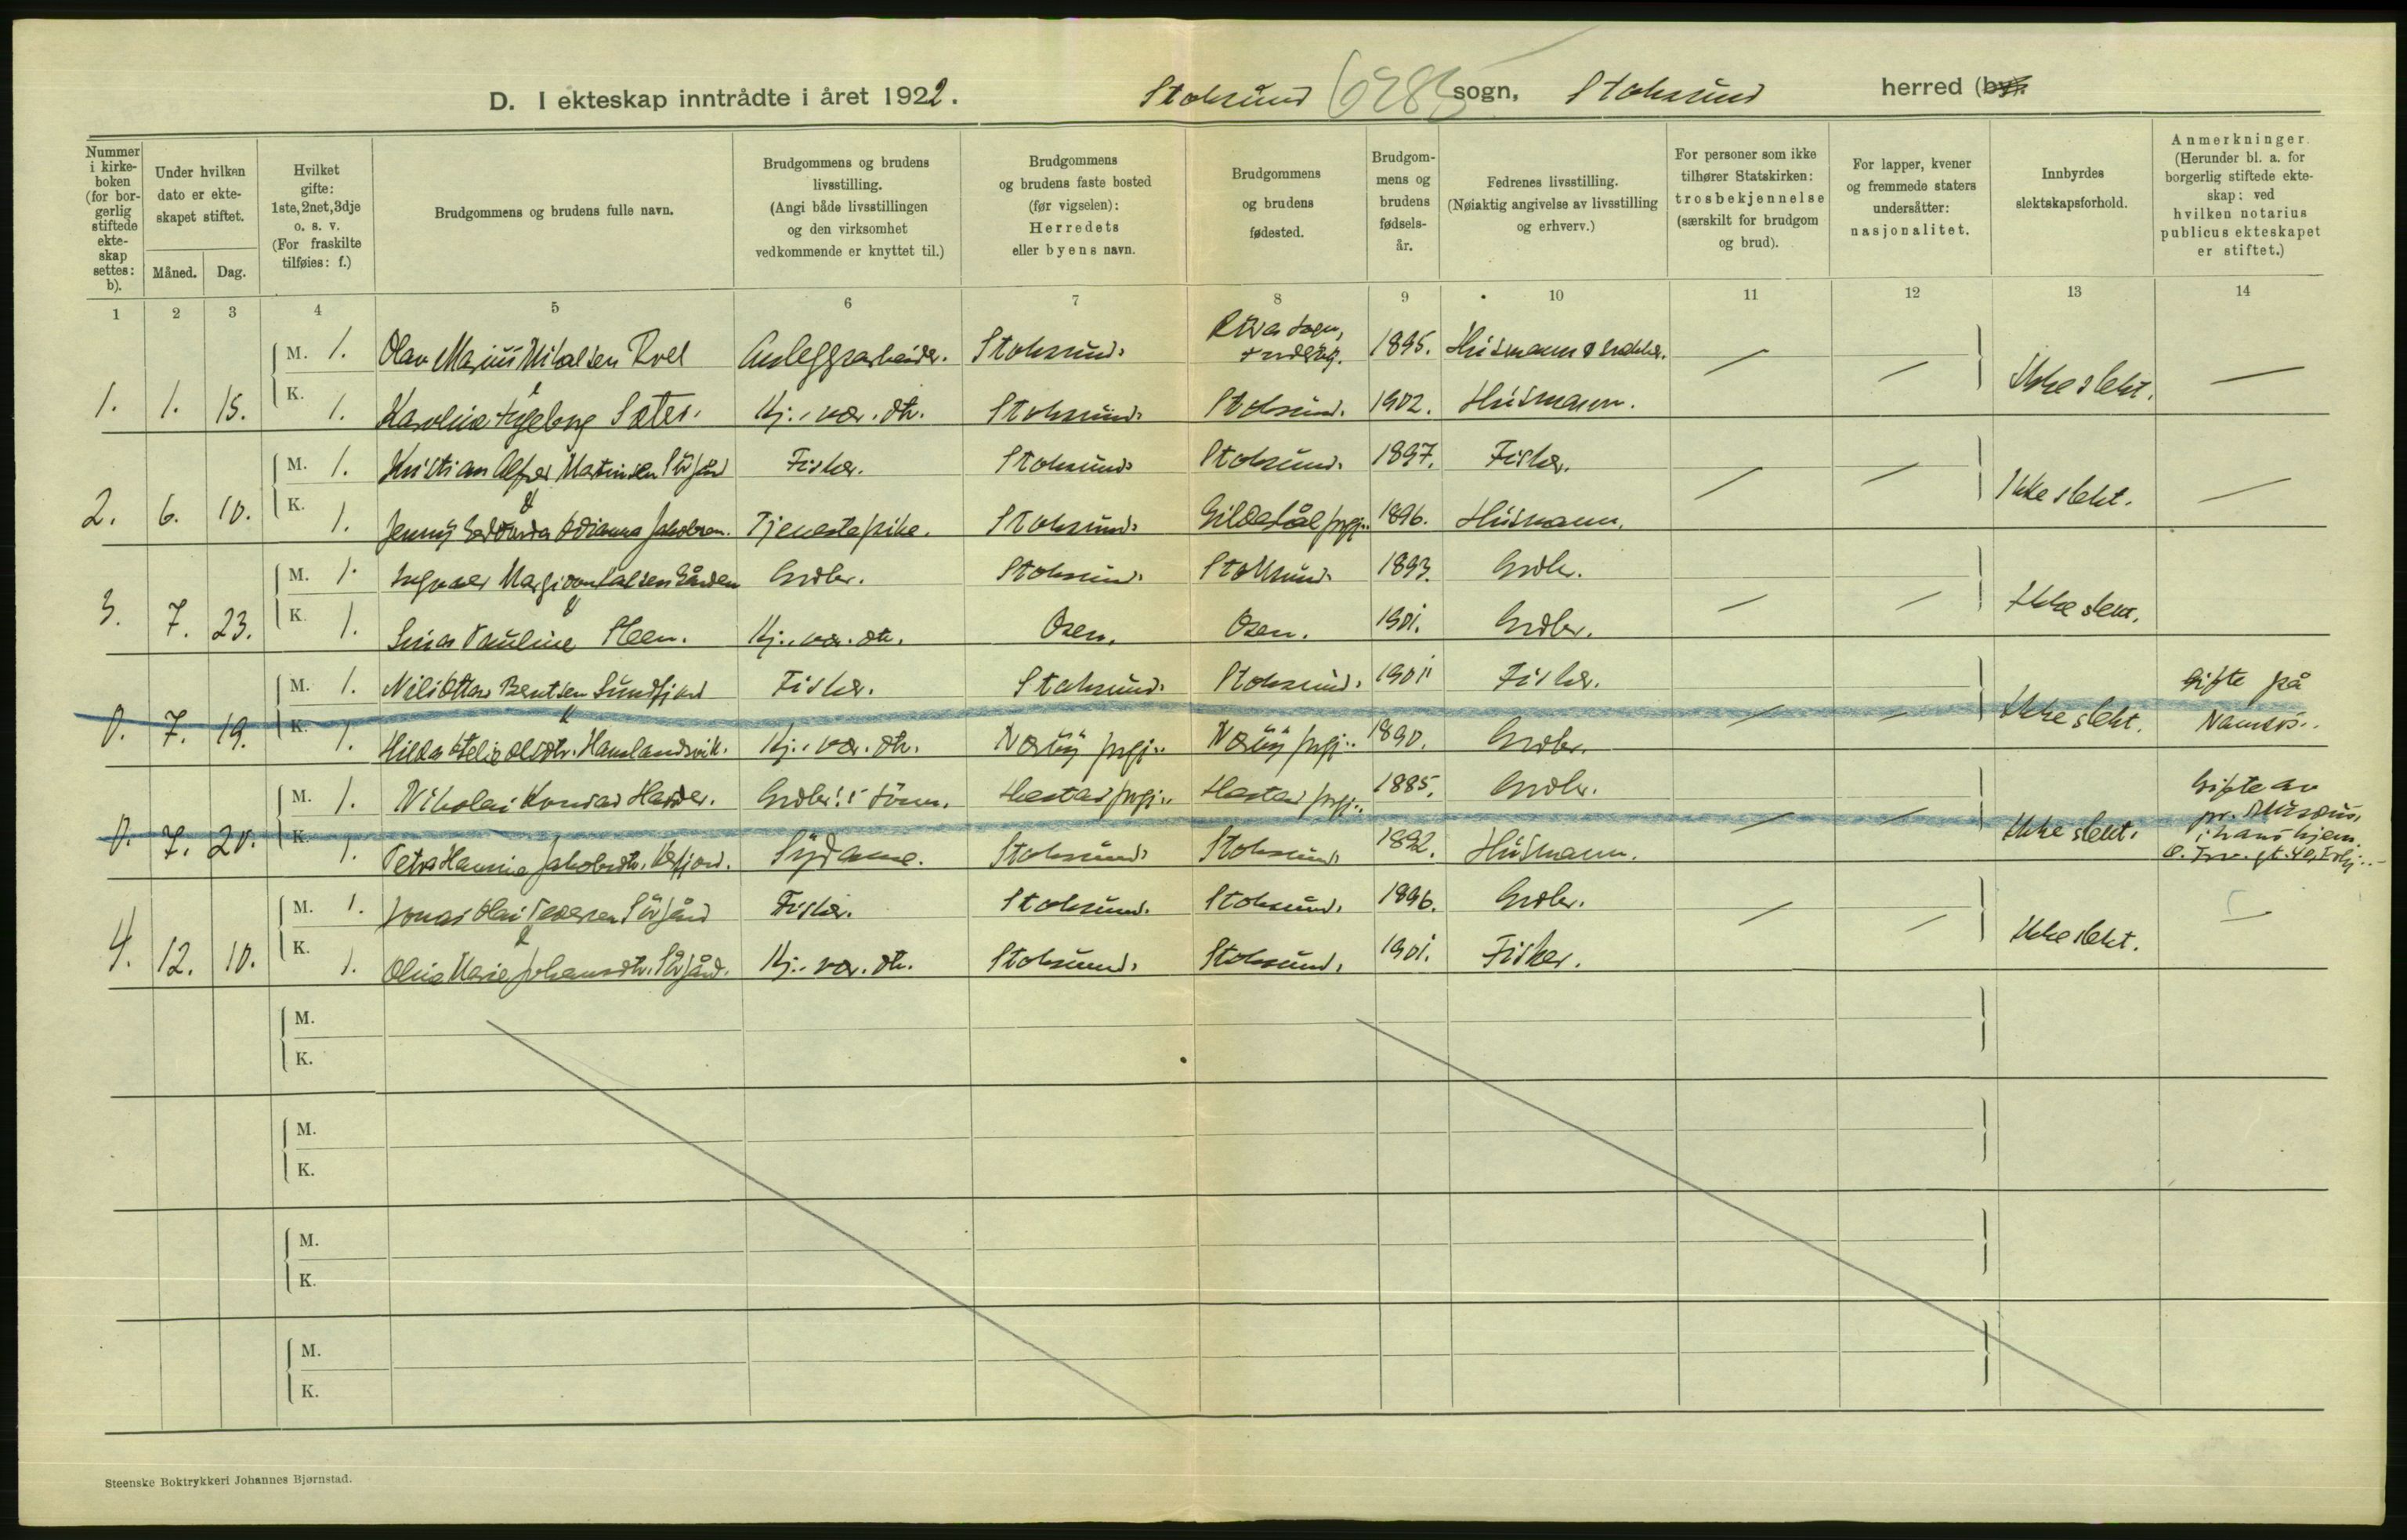 D. I ekteskap inntrådte i året 1922. Stoksund 6285 sogn, Stoksund herred (by).
Nummer i kirkeboken (for borgerlig stiftede ekteskap settes: b).
Under hvilken dato er ekteskapet stiftet.
Måned. Dag.
Hvilket gifte: 1ste, 2net, 3dje o. s. v. (For fraskilte tilføies: f.)
Brudgommens og brudens fulle navn.
Brudgommens og brudens livsstilling. (Angi både livsstillingen og den virksomhet vedkommende er knyttet til.)
Brudgommens og brudens faste bosted (før vigselen): Herredets eller byens navn.
Brudgommens og brudens fødested.
Brudgommens og brudens fødselsår.
Fedrenes livsstilling. (Nøiaktig angivelse av livsstilling og erhverv.)
For personer som ikke tilhører Statskirken: trosbekjennelse (særskilt for brudgom og brud).
For lapper, kvener og fremmede staters undersåtter: nasjonalitet.
Innbyrdes slektskapsforhold.
Anmerkninger. (Herunder bl. a. for borgerlig stiftede ekteskap: ved hvilken notarius publicus ekteskapet er stiftet.)
1 2 3 4 5 6 7 8 9 10 11 12 13 14
M. 1. Olav Marius Nikolsen Roel Anleggsarbeider. Stoksund. sogn, 1895. Husmann
1. 1. 15. K. 1. Karoline Ingeborg Sæter. Hj. vær. dtr. Stoksund. Stoksund. 1902. Husmann. — — Ikke slekt. —
M. 1. Kristian Alfred Martinsen Sørgård Fisker. Stoksund. Stoksund. 1897. Fisker.
2. 6. 10. K. 1. Jenny Adrianna Jakobsen. Tjenestepike. Stoksund. Gildeskål prgj. 1896. Husmann. — — Ikke slekt. —
M. 1. Ingvald Gården Grdbr. Stoksund. Stoksund. 1893. Grdbr.
3. 7. 23. K. 1. Pauline Steen. Hj. vær. dtr. Osen. Osen. 1901. Grdbr. — — Ikke slekt.
M. 1. Nils Ottar Bentsen Sundfjord Fisker. Stoksund. Stoksund. 1901 Fisker. Gifte på
0. 7. 19. K. 1. Hilda Hamlandsvik. Hj. vær. dtr. Nærøy prgj. Nærøy prgj. 1890. Grdbr. — — Ikke slekt. Namsos.
M. 1. Nikolai Konrad Harder. Grdbr. i Hestad prgj. Hestad prgj. 1885. Grdbr. Gifte av
0. 7. 20. K. 1. Petra Hannie Jakobsdtr. Sydame. Stoksund. Stoksund. 1892. Husmann. — — Ikke slekt. pr.
i hans hjem,
M. 1. Jonas Olai Pedersen Sørgård Fisker. Stoksund. Stoksund. 1896. Grdbr.
4. 12. 10. K. 1. Olise Marie Johansdtr. Sørgård. Hj. vær. dtr. Stoksund. Stoksund. 1901. Fisker. — — Ikke slekt. —
M.
K.
M.
K.
M.
K.
M.
K.
Steenske Boktrykkeri Johannes Bjørnstad.